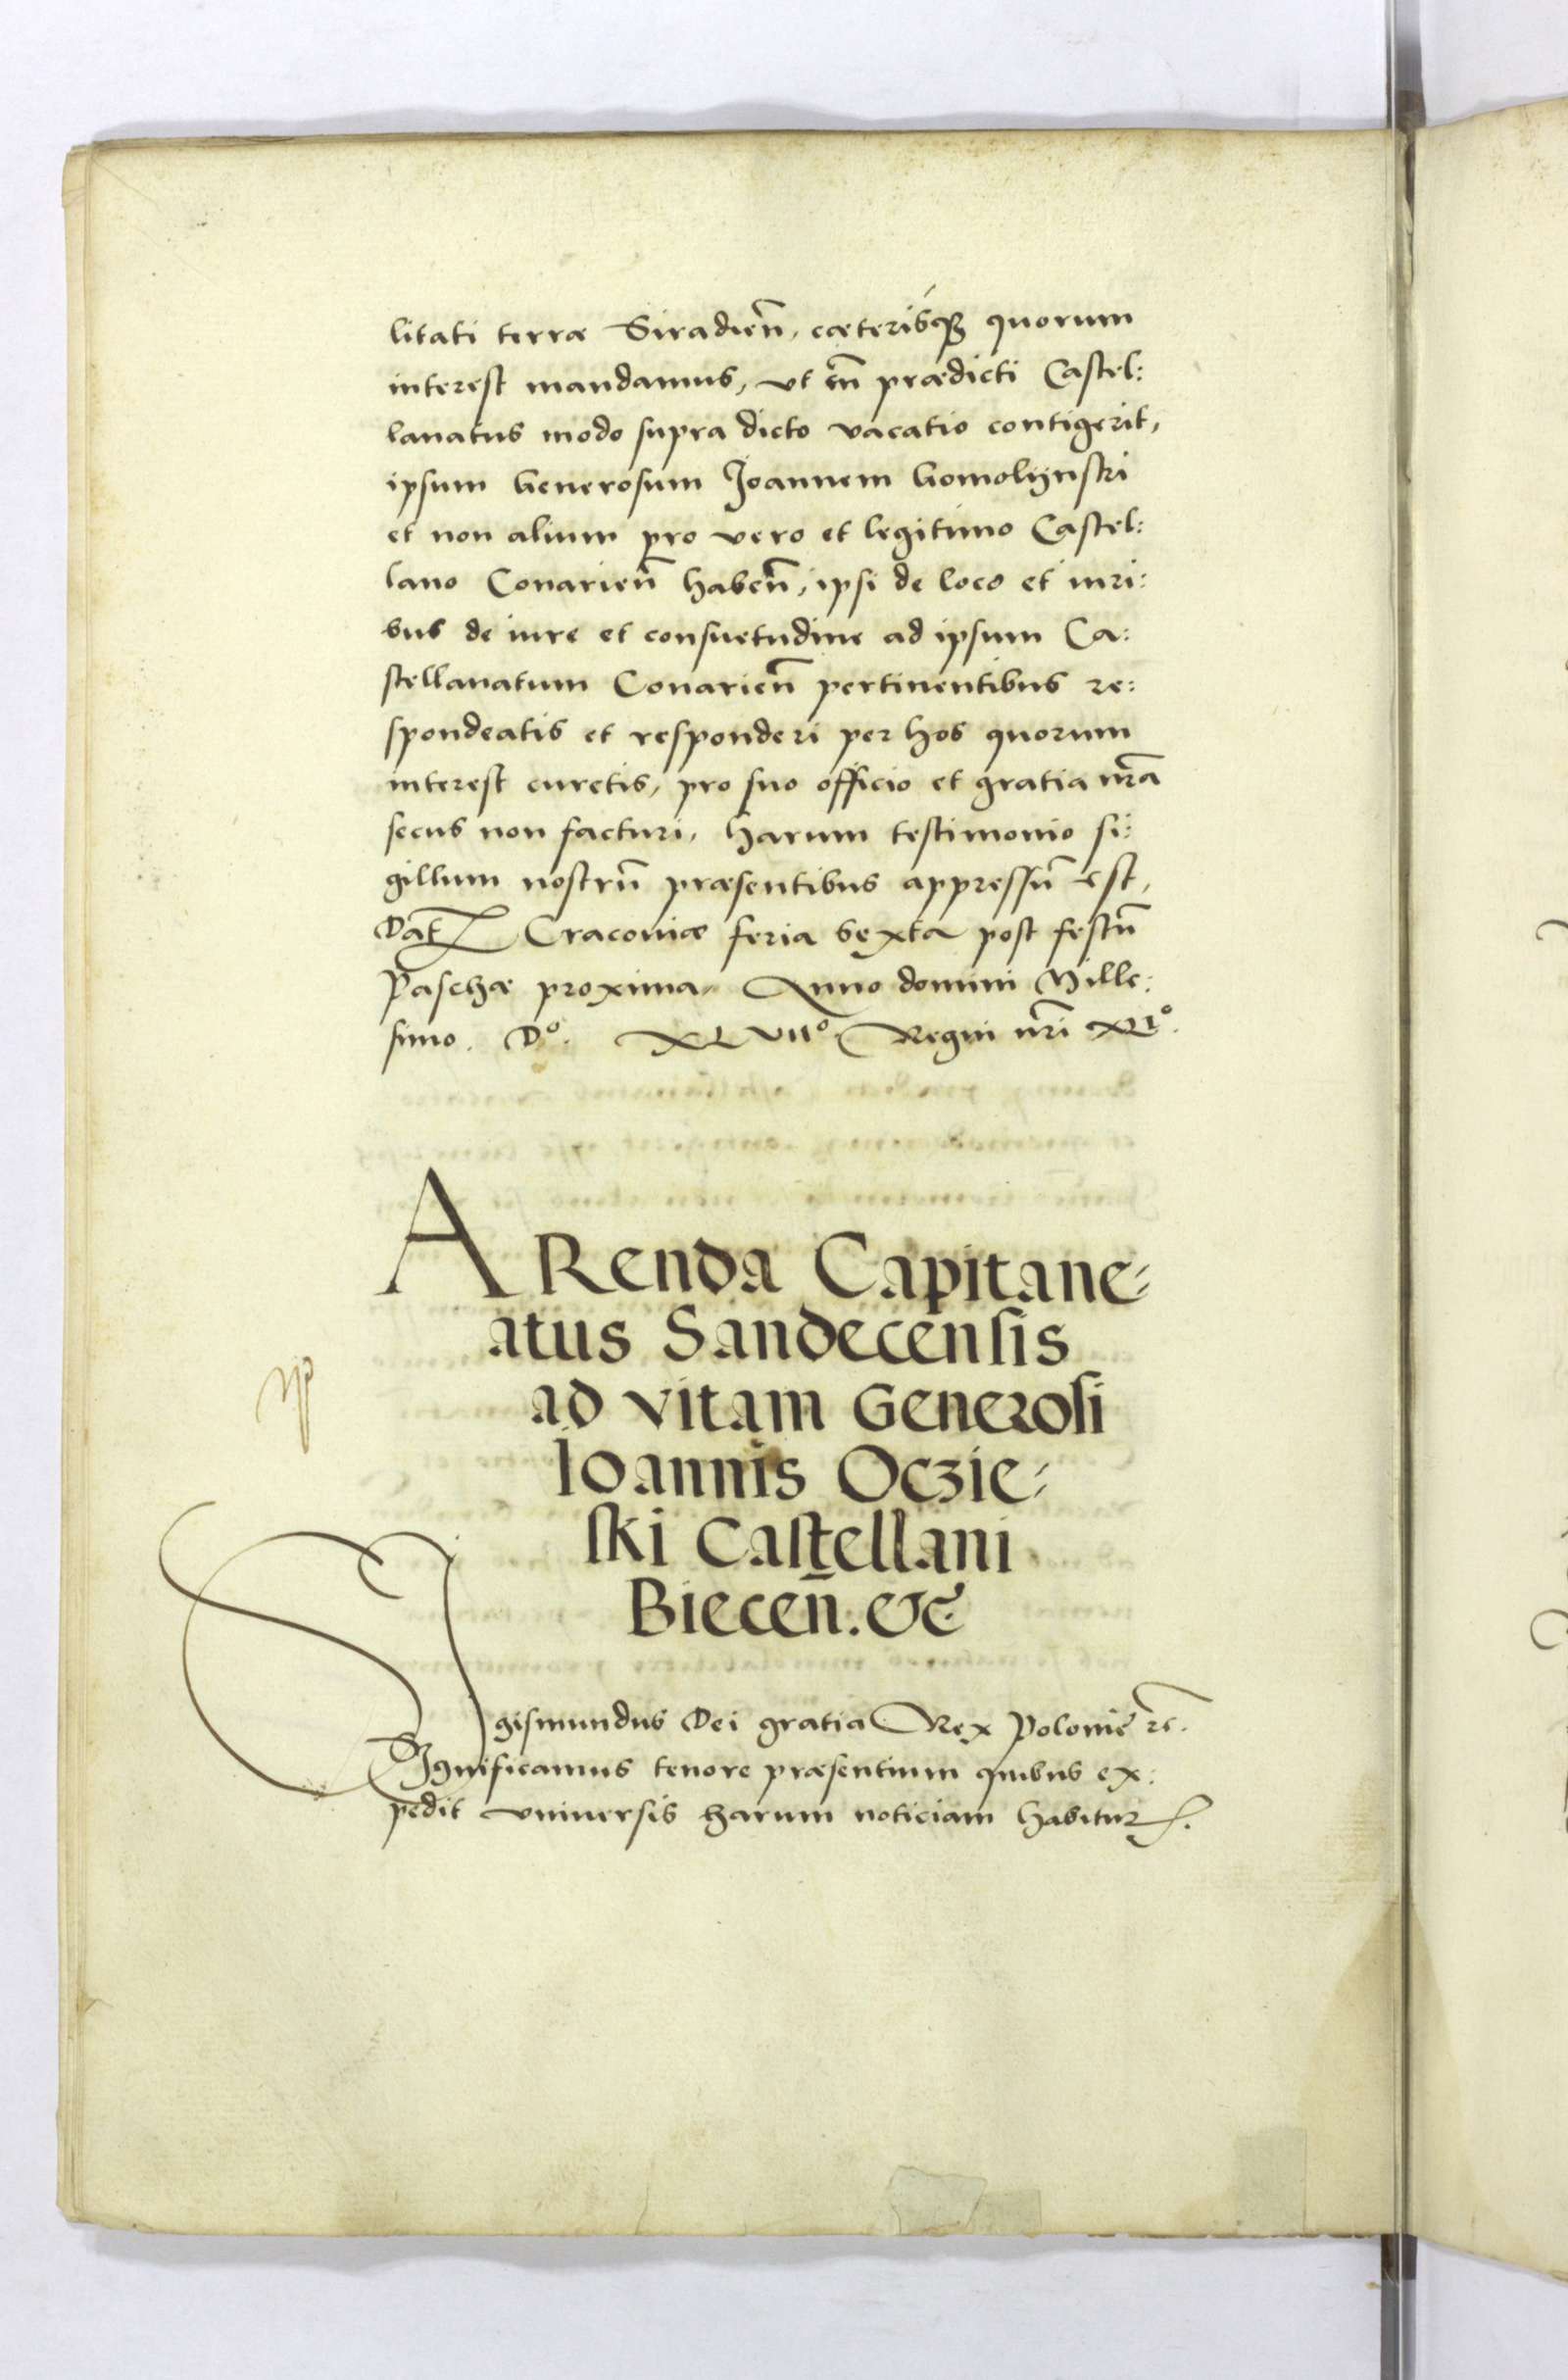 litati terræ Siradieñ, cæterisq₃ quorum
interest mandamus, vt cũ prædicti Castel:
lanatus modo supra dicto vacatio contigerit,
ipsum Generosum Joannem Gomolijnski
et non alium pro vero et legitimo Castel:
lano Conarieñ habeñ, ipsi de loco et iuri:
bus de iure et consuetudine ad ipsum Ca:
stellanatum Conarieñ pertinentibus re:
spondeatis et responderi per hos quorum
interest curetis, pro suo officio et gratia nr̃a
secus non facturi, harum testimonio si:
gillum nostrũ præsentibus appressũ est,
Dat Cracoviæ feria sexta post festũ
Paschæ proxima Anno domini Mille:
simo. D°. XLVII° Regni nr̃i XLI°.
ARenda Capitane:
atus Sandecensis
ad vitam Generosi
Ioannis Oczie:
ski Castellani
Bieceñ. etc
Sigismundus Dei gratia Rex Polonię ꝛc.
Significamus tenore præsentium quibus ex:
pedit vniuersis harum noticiam habitur.